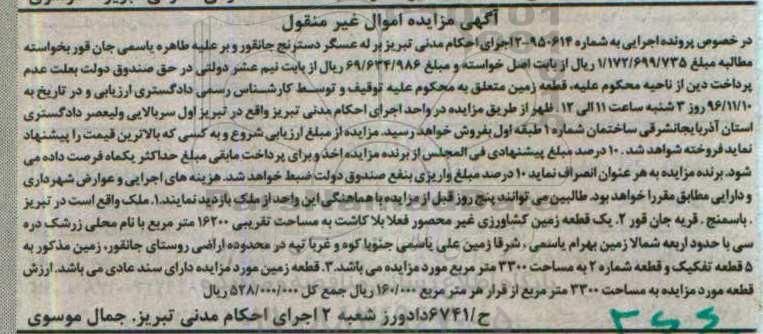 آگهی مزایده اموال غیر منقول
در خصوص پرونده اجرایی به شماره ۹۵۰۶۱۴-۱۲اجرای احکام مدنی تبریز بر له عسگر دسترنج جانقور و بر علیه طاهره یاسمی جان قور بخواسته
مطالبه مبلغ ۱/۱۷۲/۶۹۹/۷۳۵ ریال از بابت اصل خواسته و مبلغ ۶۹/۶۳۴/۹۸۶ ریال از بابت نیم عشر دولتی در حق صندوق دولت بعلت عدم
پرداخت دین از ناحیه محکوم علیه، قطعه زمین متعلق به محکوم علیه توقیف و توسط کارشناس رسمی دادگستری ارزیابی و در تاریخ به
۹۶/۱۱/۱۰ روز ۳ شنبه ساعت ۱۱ الی ۱۲ . ظهر از طریق مزایده در واحد اجرای احکام مدنی تبریز واقع در تبریز اول سربالایی ولیعصر دادگستری
استان آذربایجانشرقی ساختمان شماره ۱ طبقه اول بفروش خواهد رسید. مزایده از مبلغ ارزیابی شروع و به کسی که بالاترین قیمت را پیشنهاد
نماید فروخته شواهد شد . ۱۰ درصد مبلغ پیشنهادی فی المجلس از برنده مزایده اخذ و برای پرداخت مابقی مبلغ حداکثر یکماه فرصت داده می
شود. برنده مزایده به هر عنوان انصراف نماید ۱۰ درصد مبلغ واریزی بنفع صندوق دولت ضبط خواهد شد. هزینه های اجرایی و عوارض شهرداری
و دارایی مطابق مقررا خواهد بود. طالبین می توانند پنج روز قبل از مزایده با هماهنگی این واحد از ملک بازدید نمایند.۱. ملک واقع است در تبریز
. باسمنج . قریه جان قور ۲. یک قطعه زمین کشاورزی غیر محصور فعلا بلا کاشت به مساحت تقریبی ۱۶۲۰۰ متر مربع با نام محلی زرشک دره
سی با حدود اربعه شمالا زمین بهرام یاسمی ، شرقا زمین علی یاسمی جنوبا کوه و غربا تپه در محدوده اراضی روستای جانقور، زمین مذکور به
۵ قطعه تفکیک و قطعه شماره ۲ به مساحت ۳۳۰۰ متر مربع مورد مزایده می باشد.۳. قطعه زمین مورد مزایده دارای سند عادی می باشد. ارزش
قطعه مورد مزایده به مساحت ۳۳۰۰ متر مربع از قرار هر متر مربع ۱۶۰/۰۰۰ ریال جمع کل ۵۲۸/۰۰۰/۰۰۰ ریال
ح/۶۷۴۱دادورز شعبه ۲ اجرای احکام مدنی تبریز. جمال موسوی